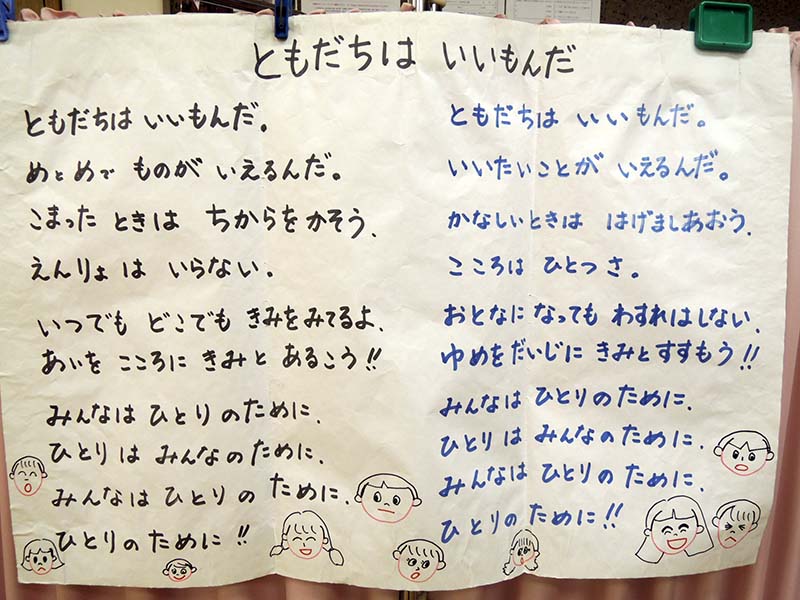 ともだちは いいもんだ
ともだちは いいもんだ。
めとめで ものが いえるんだ。
こまった ときは ちからをかそう、
えんりょ は いらない。
いつでも どこでも きみをみてるよ、
あいを こころに きみと あるこう!!
みんなは ひとりのために、
ひとりは みんなのために、
みんなは ひとりの ために、
ひとりの ために!!
ともだちは いいもんだ。
いいたいことが いえるんだ。
かなしいときは はげましあおう、
こころは ひとつさ。
おとなに なっても わすれはしない、
ゆめをだいじに きみとすすもう!!
みんなは ひとりのために、
ひとりは みんなのために、
みんなは ひとりのために、
ひとりの ために!!